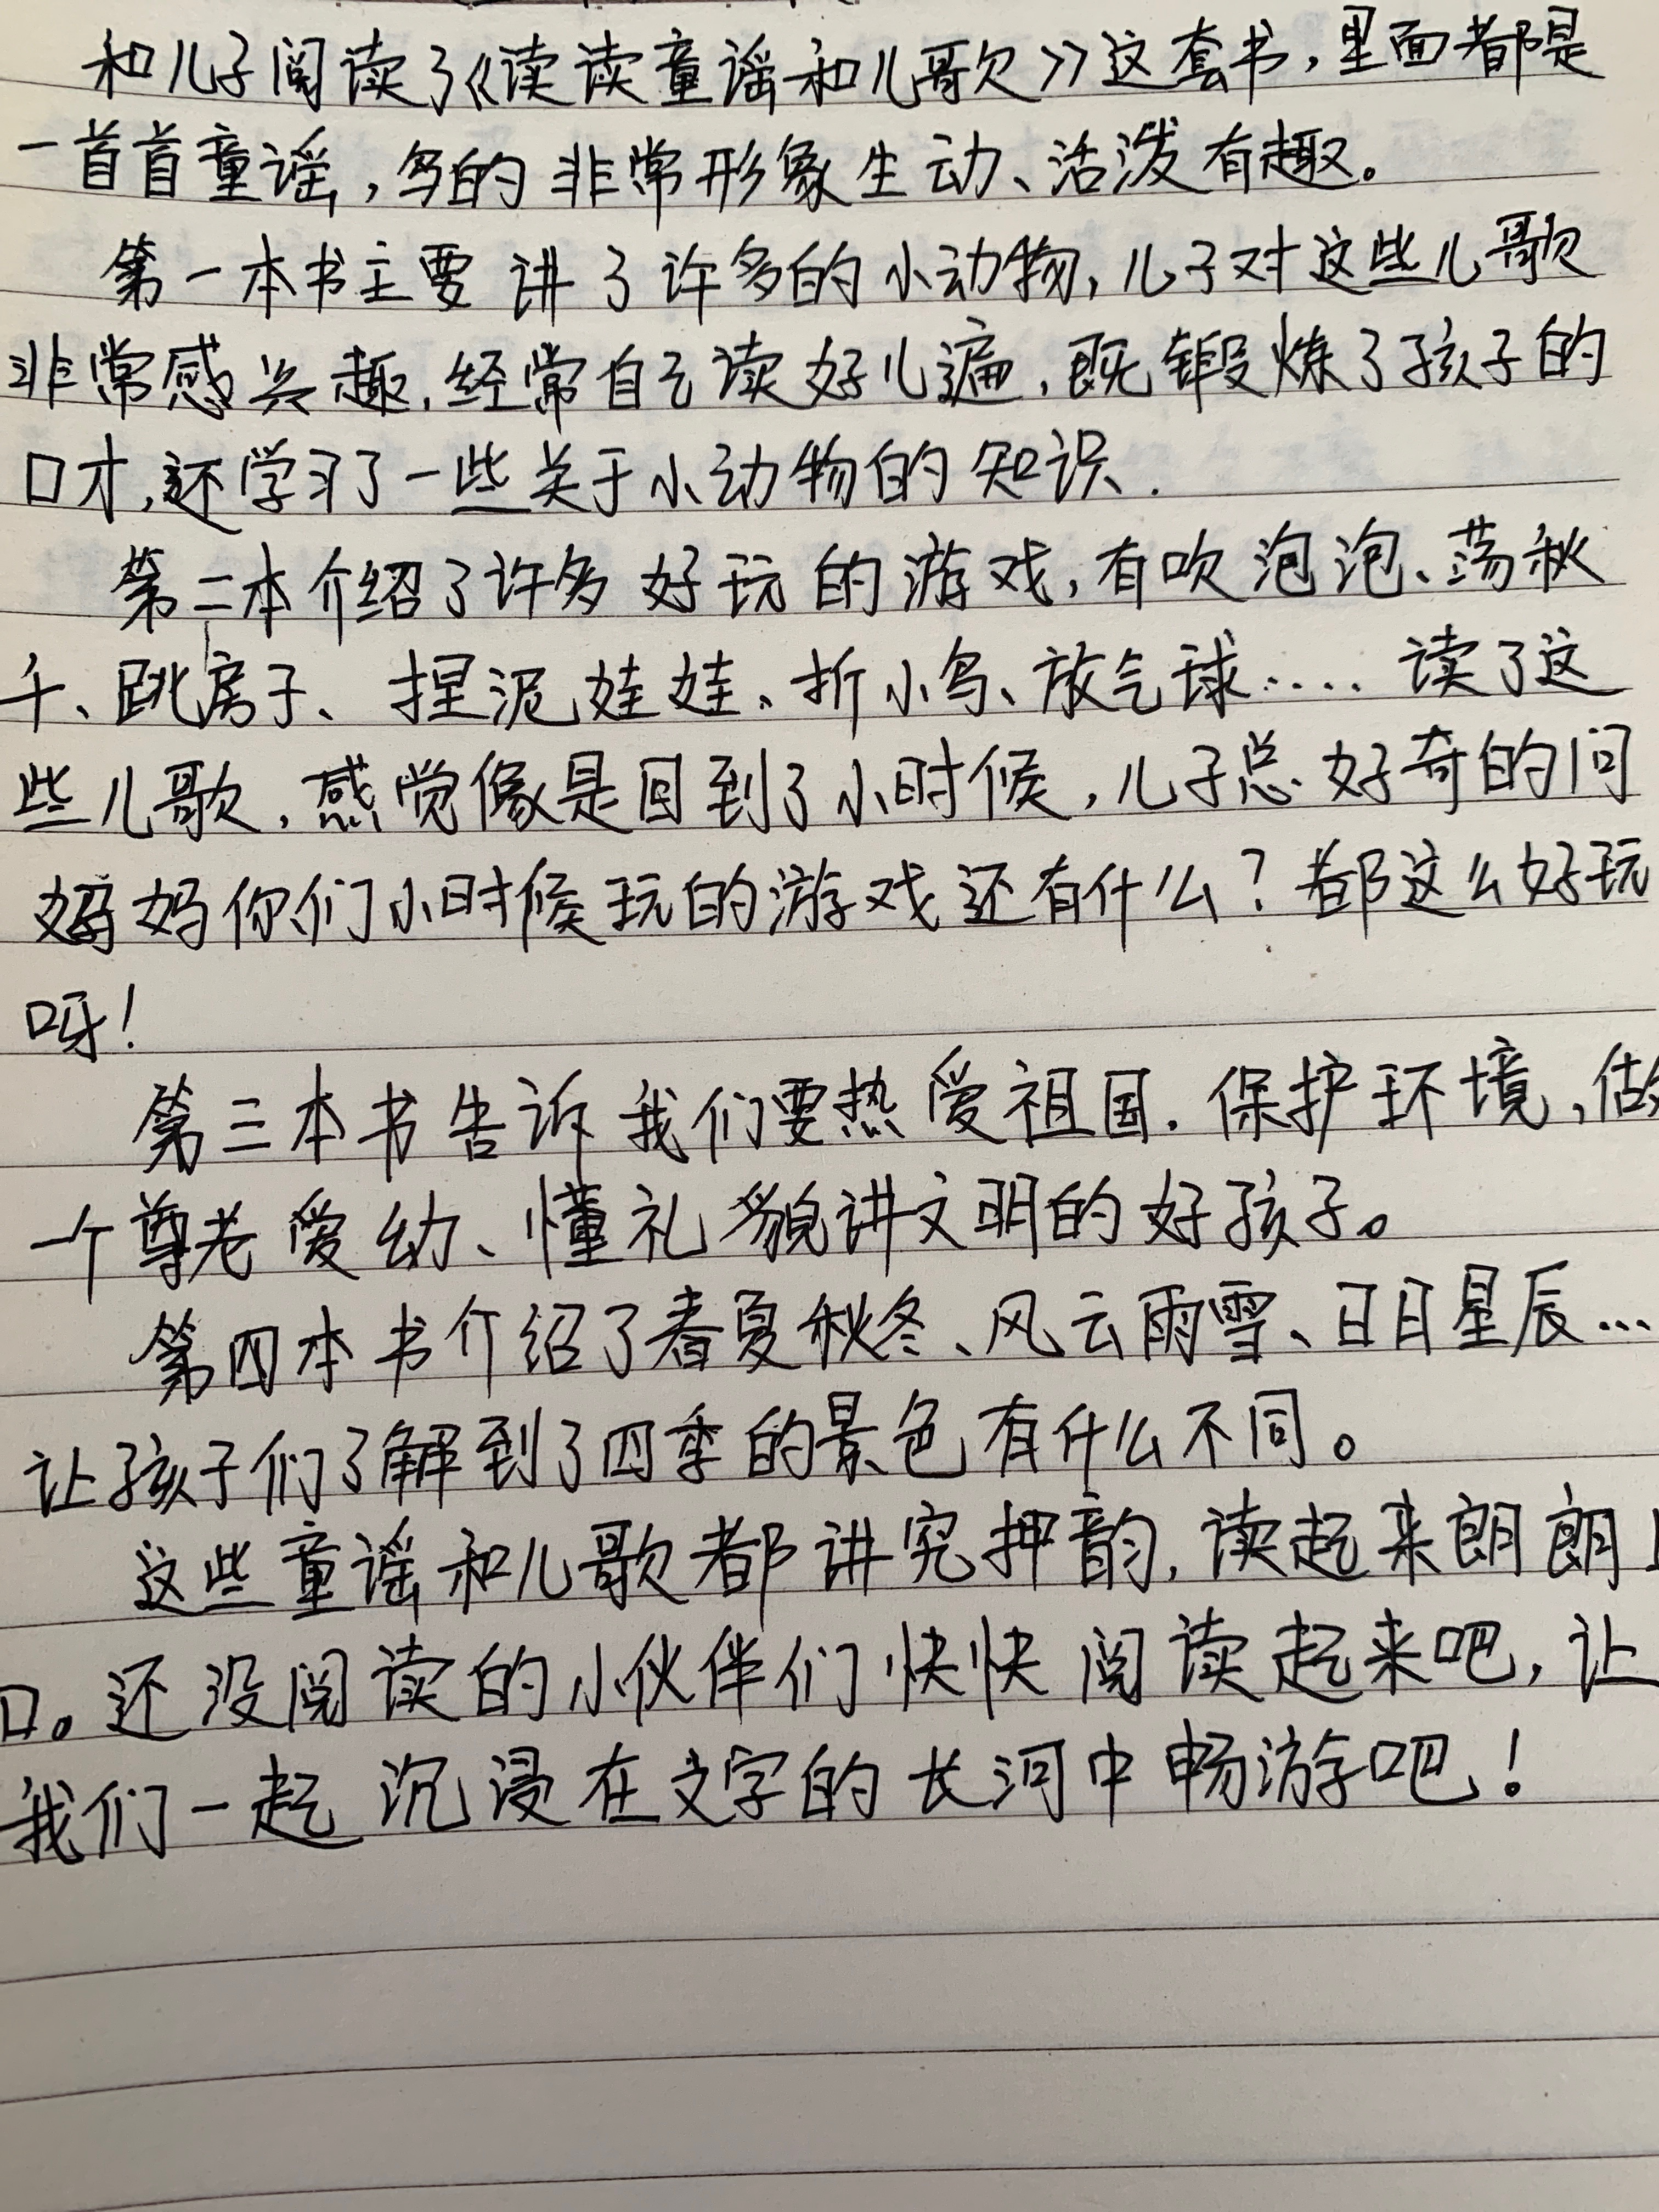 和儿子阅读了《读读童谣和儿歌》这套书，里面都是
一首首童谣，写的非常形象生动、活泼有趣。
第一本书主要讲了许多的小动物，儿子对这些儿歌
非常感兴趣，经常自己读好几遍，既锻炼了孩子的
口才，还学习了一些关于小动物的知识．
第二本介绍了许多好玩的游戏，有吹泡泡、荡秋
千、跳房子、捏泥娃娃、折小鸟、放气球…… 读了这
些儿歌，感觉像是回到了小时候，儿子总好奇的问
妈妈你们小时候玩的游戏还有什么？都这么好玩
呀！
第三本书告诉我们要热爱祖国．保护环境，做
一个尊老爱幼、懂礼貌讲文明的好孩子。
第四本书介绍了春夏秋冬、风云雨雪、日月星辰…
让孩子们了解到了四季的景色有什么不同。
这些童谣和儿歌都讲究押韵，读起来朗朗上
口。还没阅读的小伙伴们快快阅读起来吧，让
我们一起沉浸在文字的长河中畅游吧！